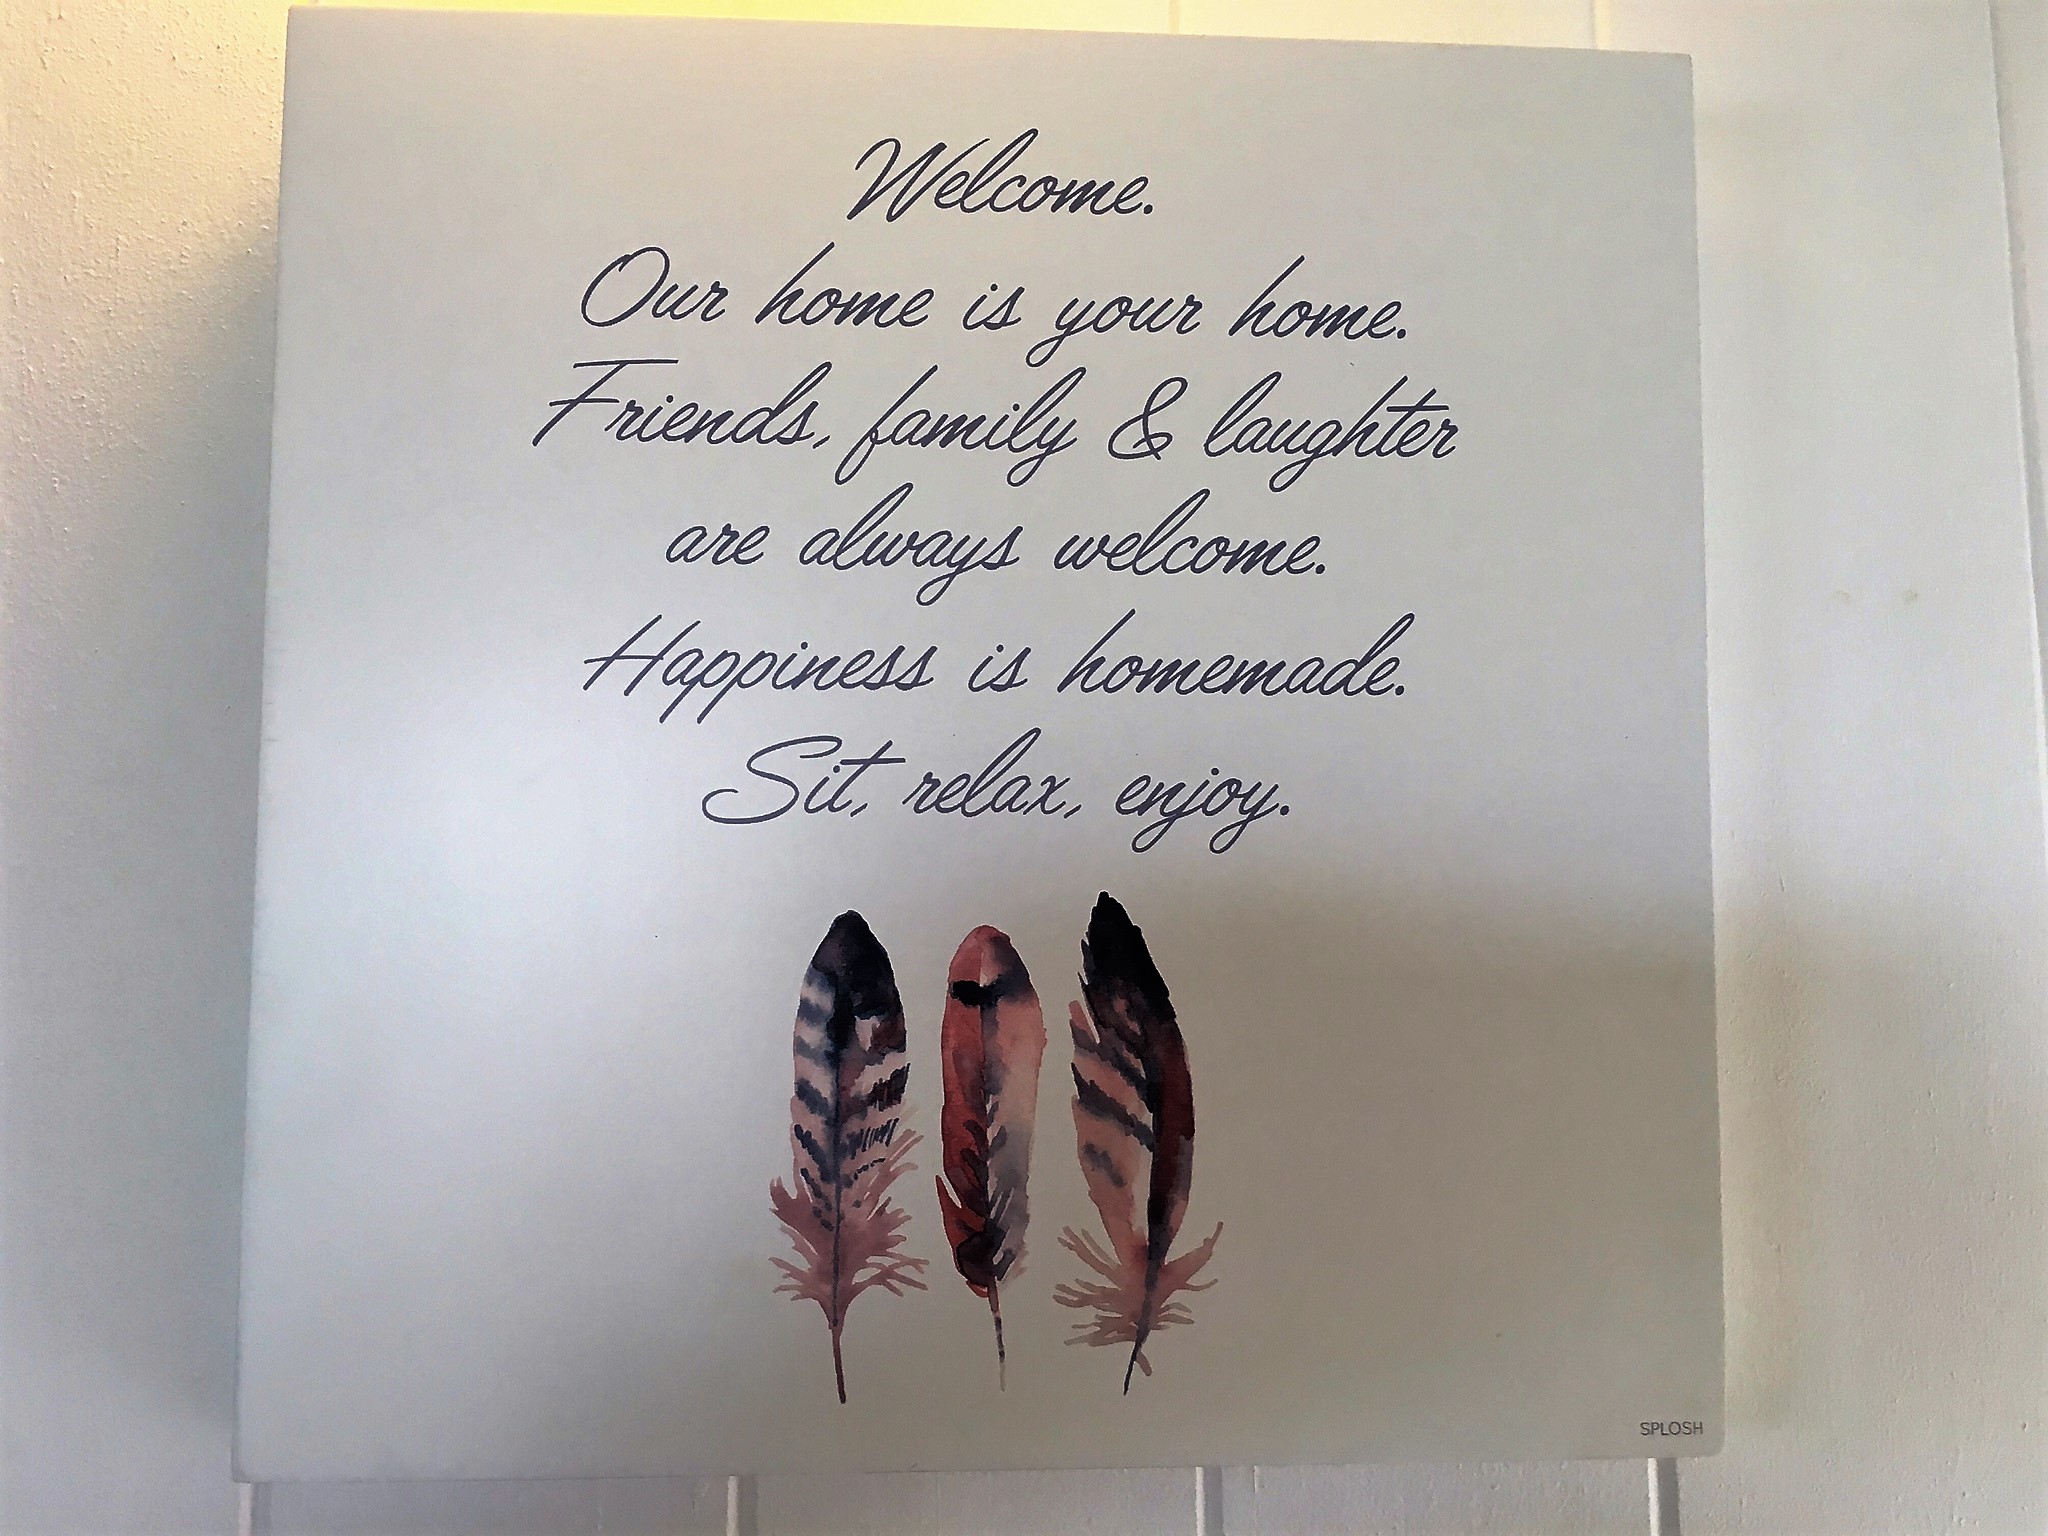 Welcome.
Our home is your home.
Friends, family & laughter
are always welcome.
Happiness is homemade.
Sit, relax, enjoy.
SPLOSH